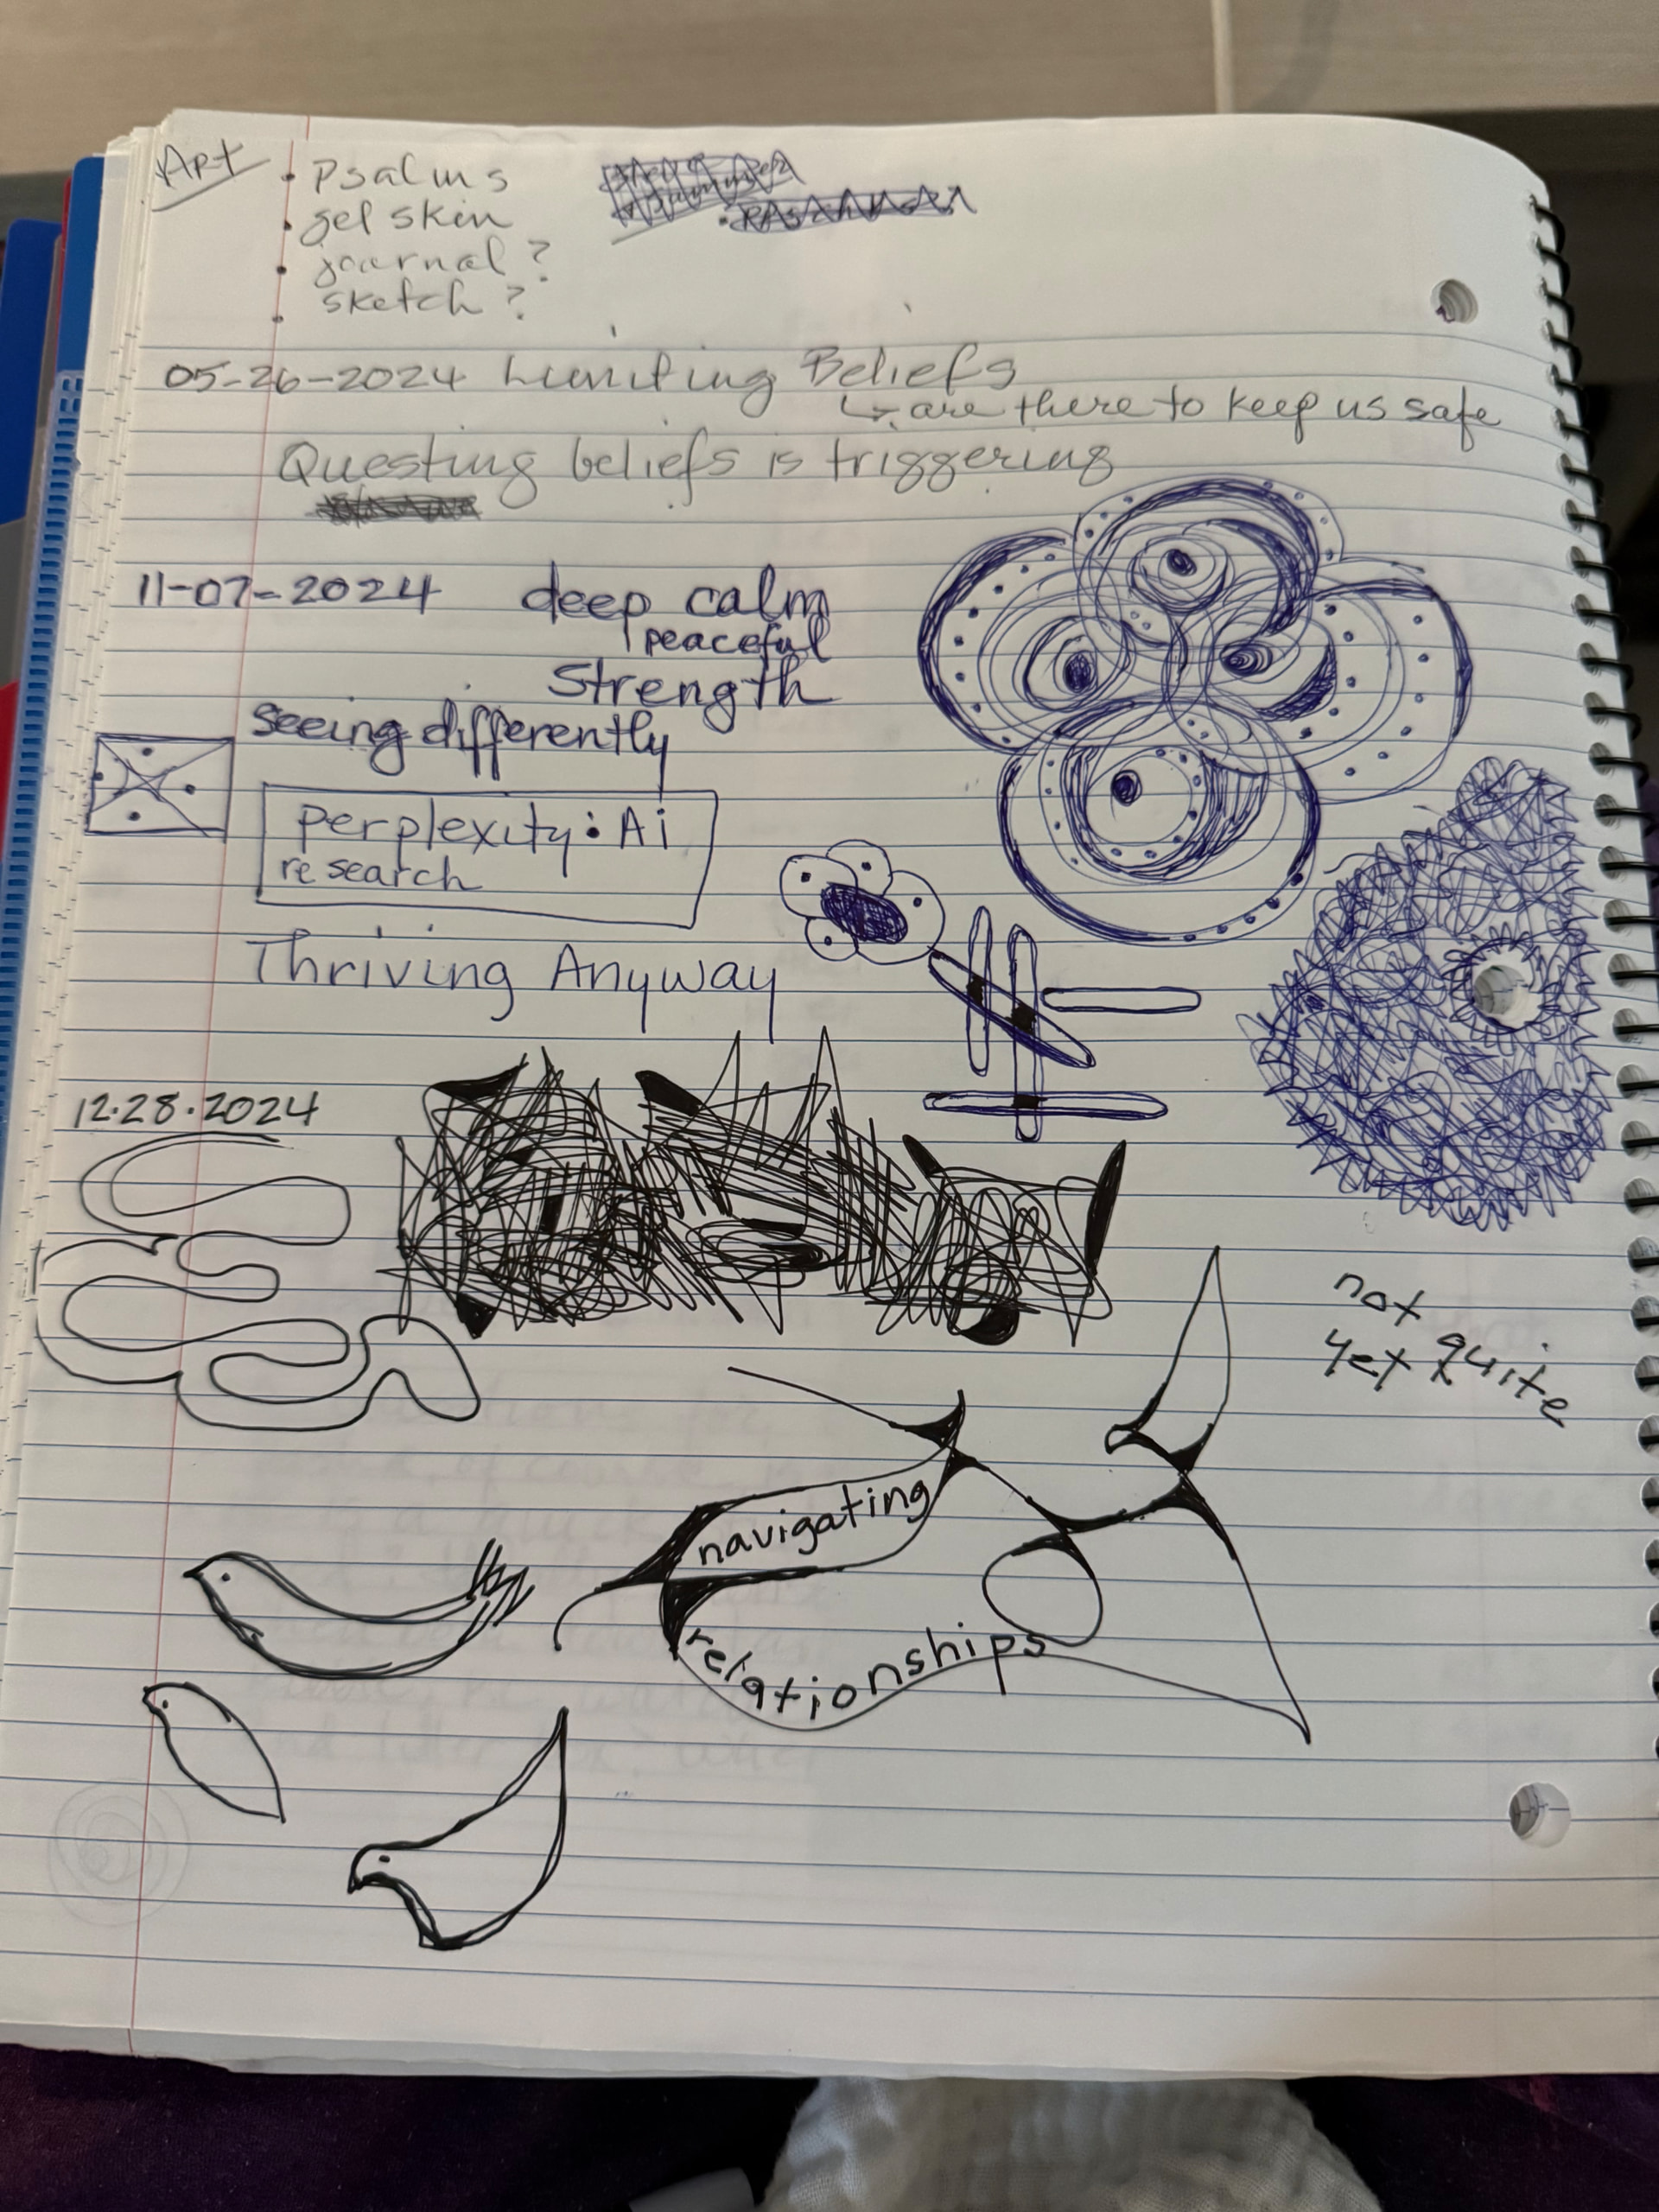 Art
• Psalms
• gel skin
• journal?
• sketch?
05-26-2024 Limiting Beliefs
↳ are there to keep us safe
Questing beliefs is triggering
11-07-2024 deep calm
peaceful
Strength
seeing differently
perplexity: Ai
research
Thriving Anyway
12.28.2024
not quite
yet
navigating
relationships